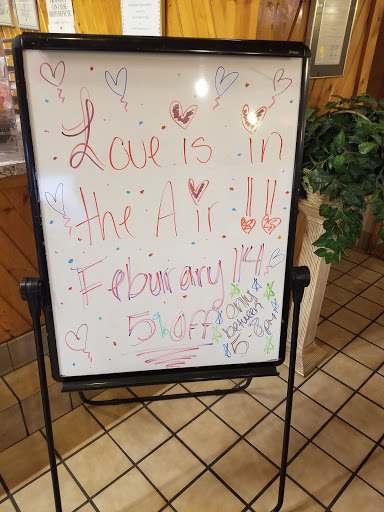 Love is in
the Air!!
Feburary 14
5% off!
only
between
5-8pm